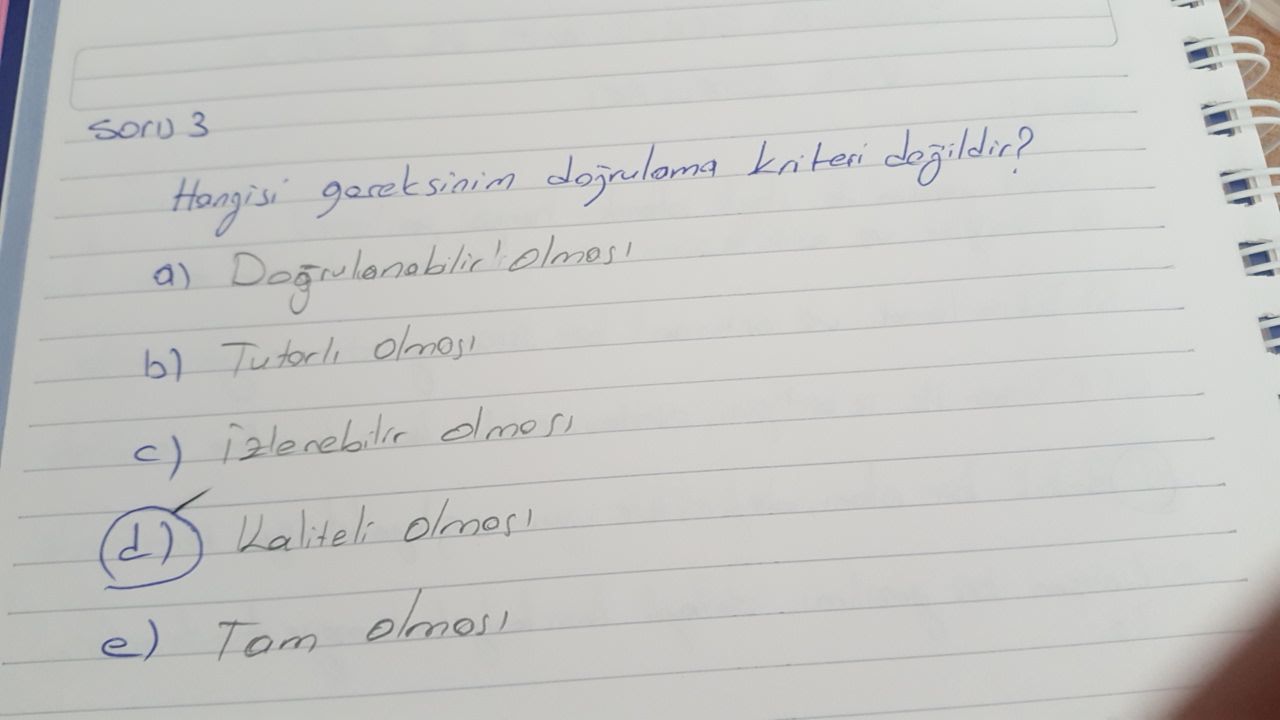 Soru 3
Hangisi gereksinim doğrulama kriteri değildir?
a) Doğrulanabilir olması
b) Tutarlı olması
c) İzlenebilir olması
d) Kaliteli olması
e) Tam olması